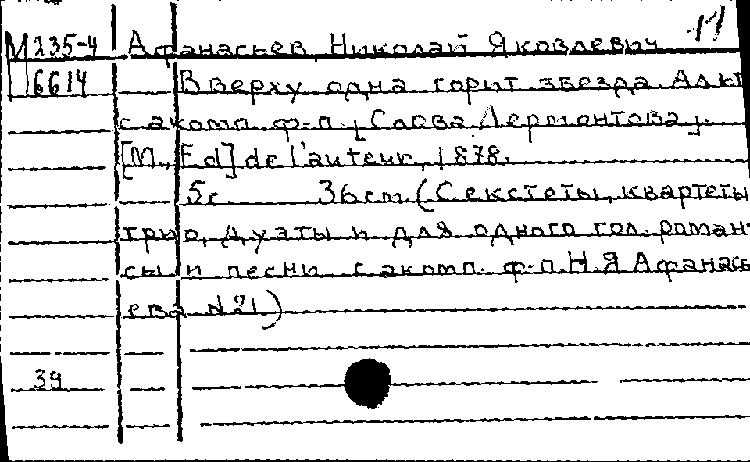 М235-4 Афанасьев, Николай Яковлевич 11
6614 Вверху одна горит звезда. Альт
с акомп. ф-п., [Слова Лермонтова].
[М., Ed] de l'auteur, 1878.
5с 36cm (Секстеты, квартеты,
трио, дуэты и для одного гол. роман-
сы и песни с акомп. ф-п. Н.Я Афанась-
ева №21)
39